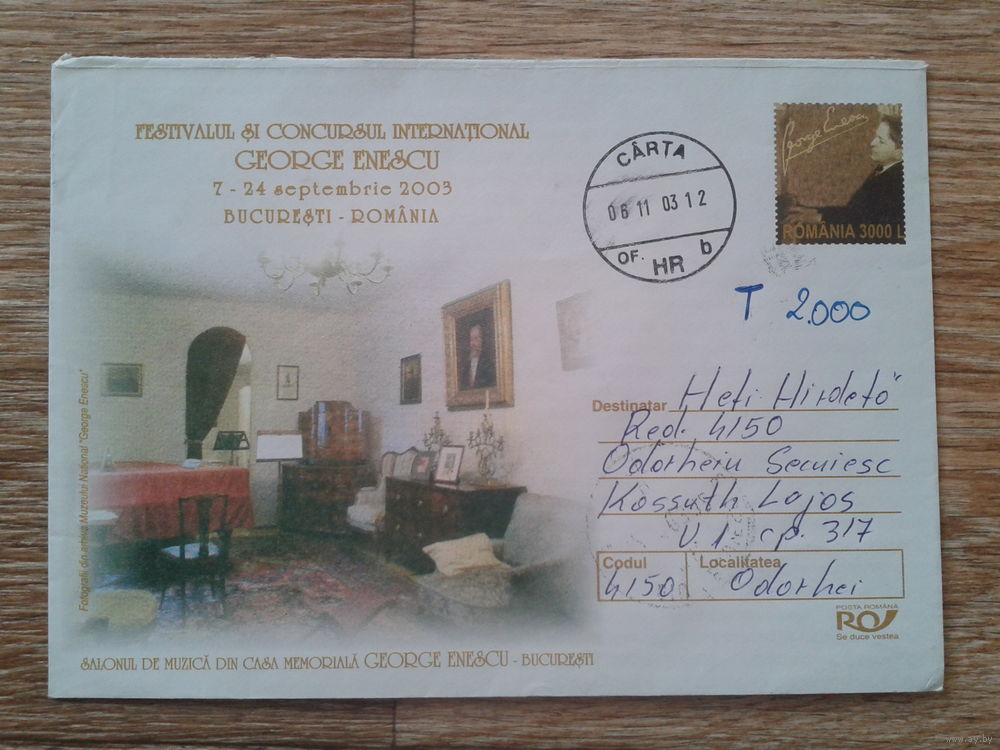 FESTIVALUL ȘI CONCURSUL INTERNAȚIONAL
GEORGE ENESCU
7 - 24 septembrie 2003
BUCUREȘTI - ROMÂNIA
CÂRȚA
06 11 03 12
OF. HR b
George Enescu
ROMÂNIA 3000 L
T 2.000
Destinatar Heti Hirdető
Red. 4150
Odorheiu Secuiesc
Kossuth Lajos
V. 1. cp. 317
Codul 4150
Localitatea Odorhei
POSTA ROMÂNĂ
Se duce vestea
Fotografii din arhiva Muzeului Național "George Enescu"
SALONUL DE MUZICĂ DIN CASA MEMORIALĂ GEORGE ENESCU - BUCUREȘTI
www.ay.by